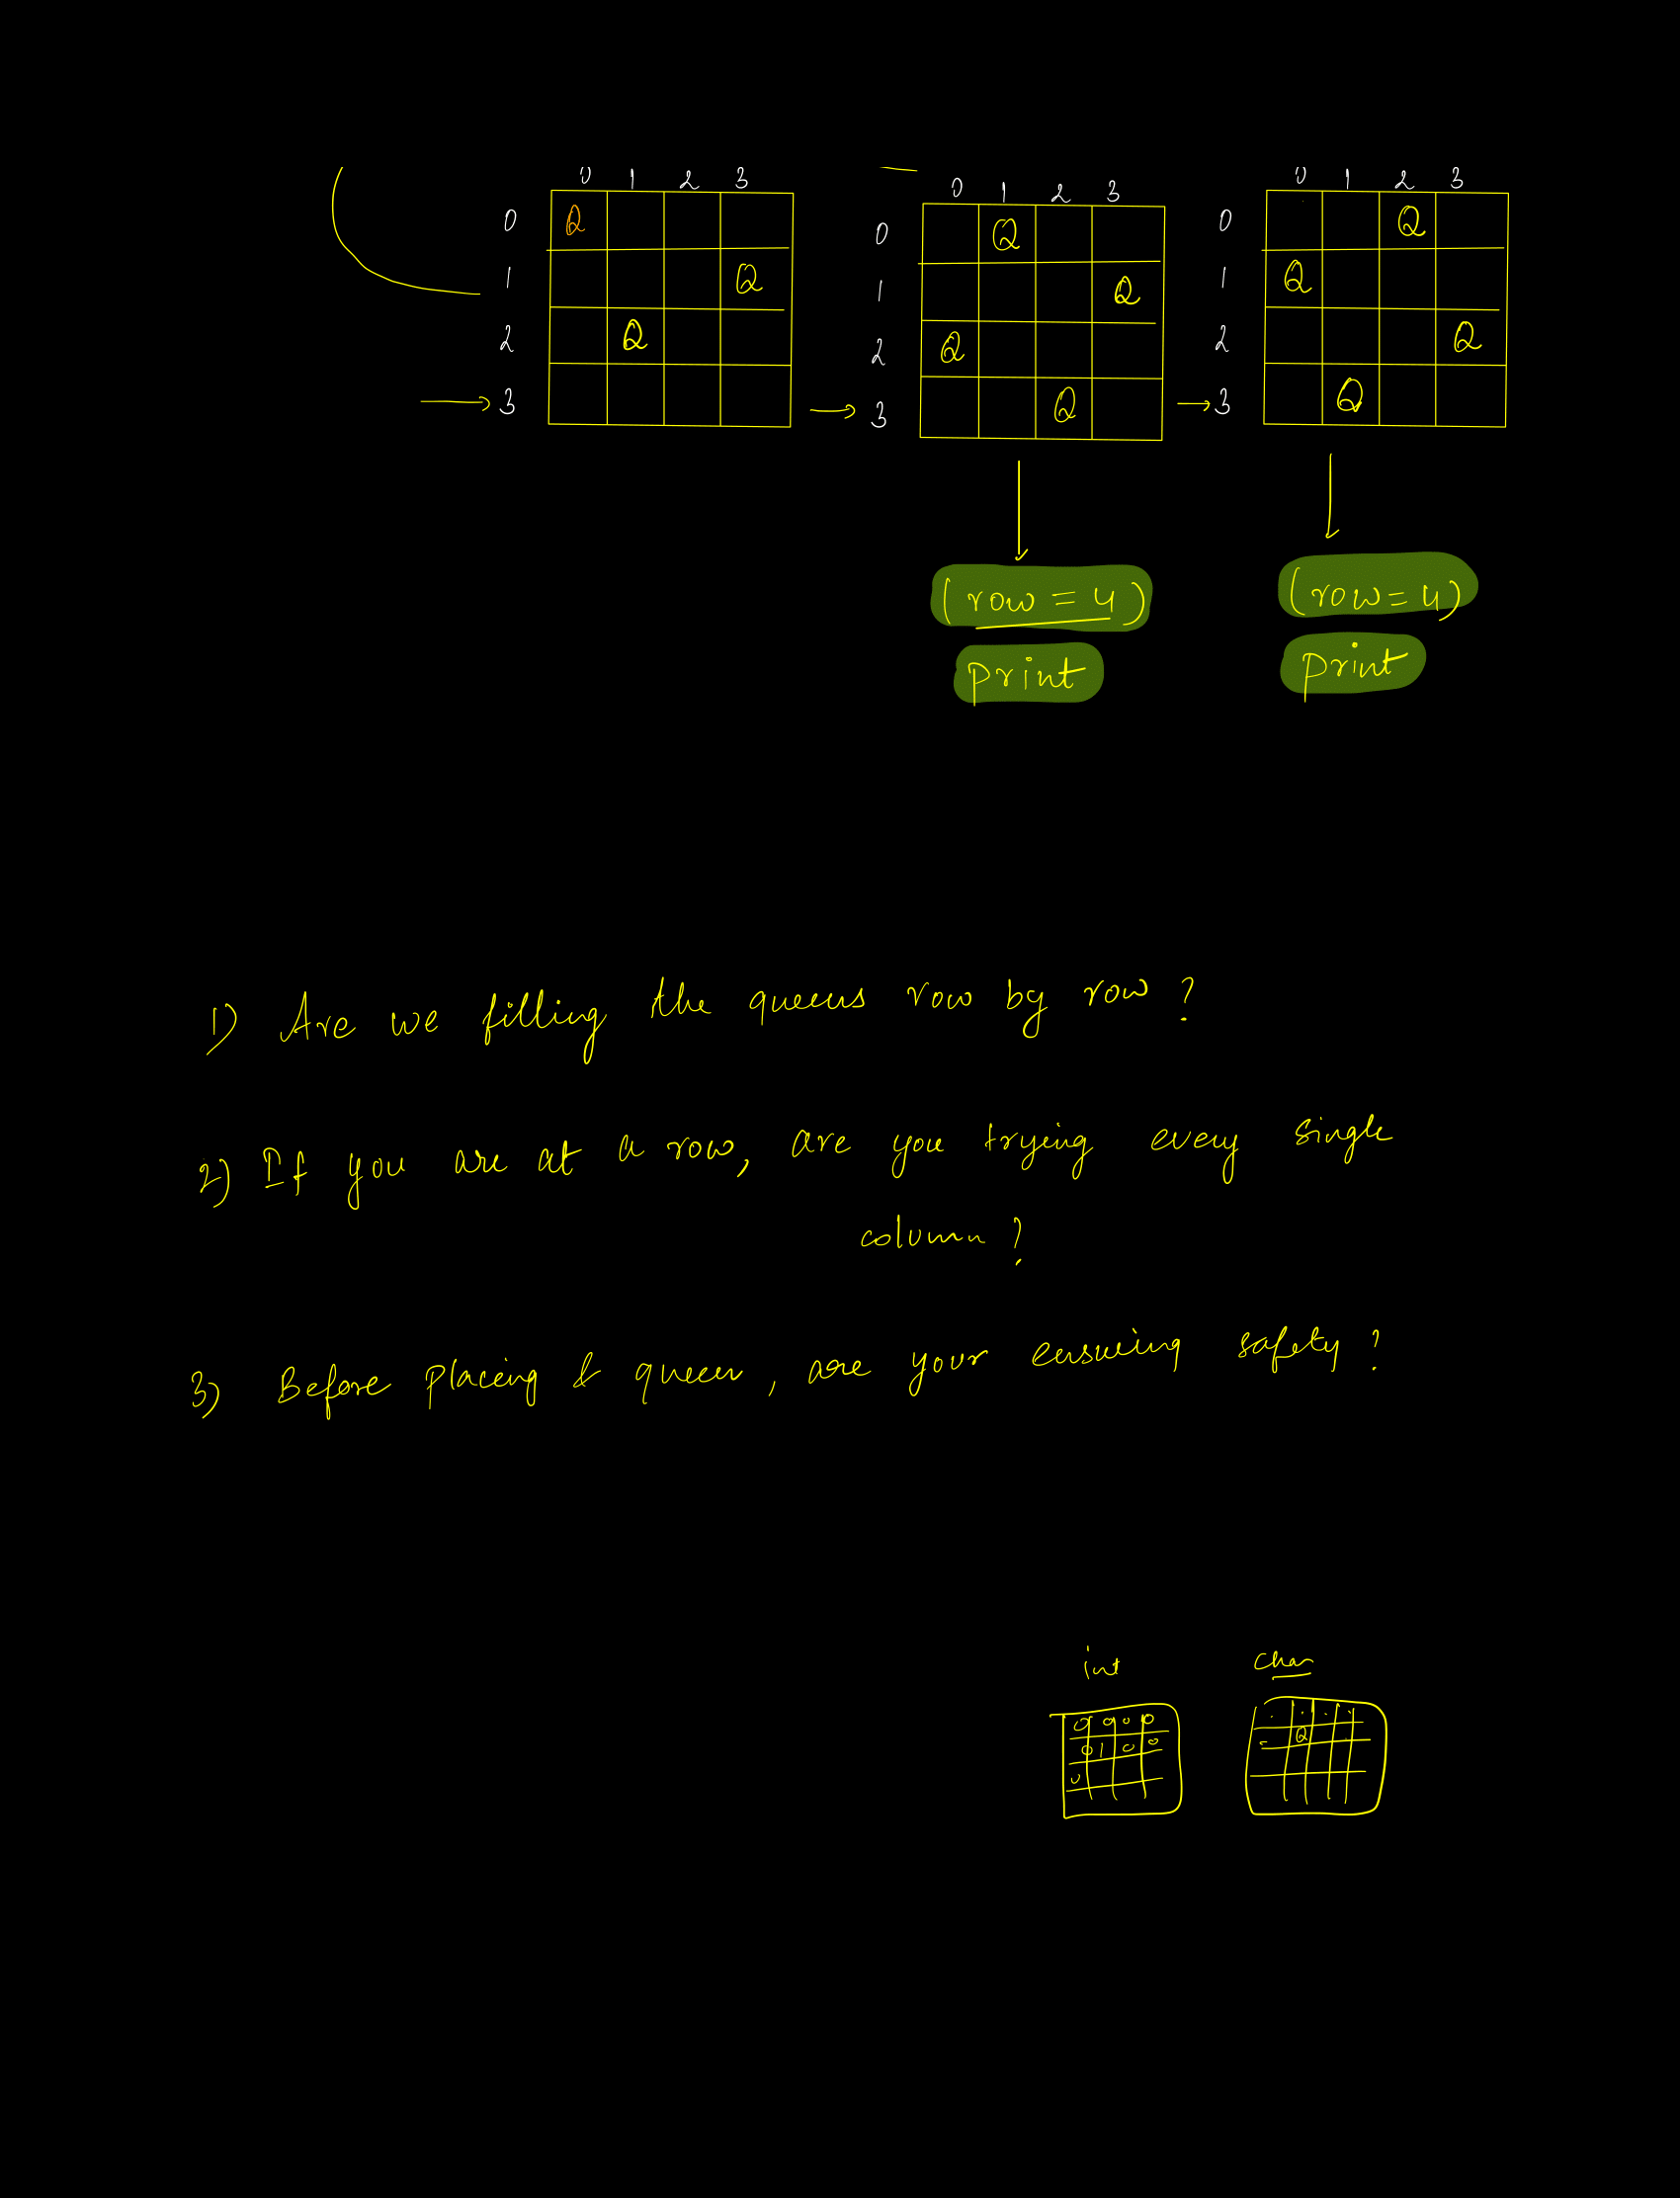 0 1 2 3
0 1 2 3
0 1 2 3
0 Q
0 Q
0 Q
1 Q
1 Q
1 Q
2 Q
2 Q
2 Q
3
3 Q
3 Q
(row = 4)
(row = 4)
print
print
1) Are we filling the queens row by row ?
2) If you are at a row, are you trying every single
column ?
3) Before placing queen, are your ensuring safety ?
int
char
0 0 0 0
. . . .
0 1 0 0
. Q
0